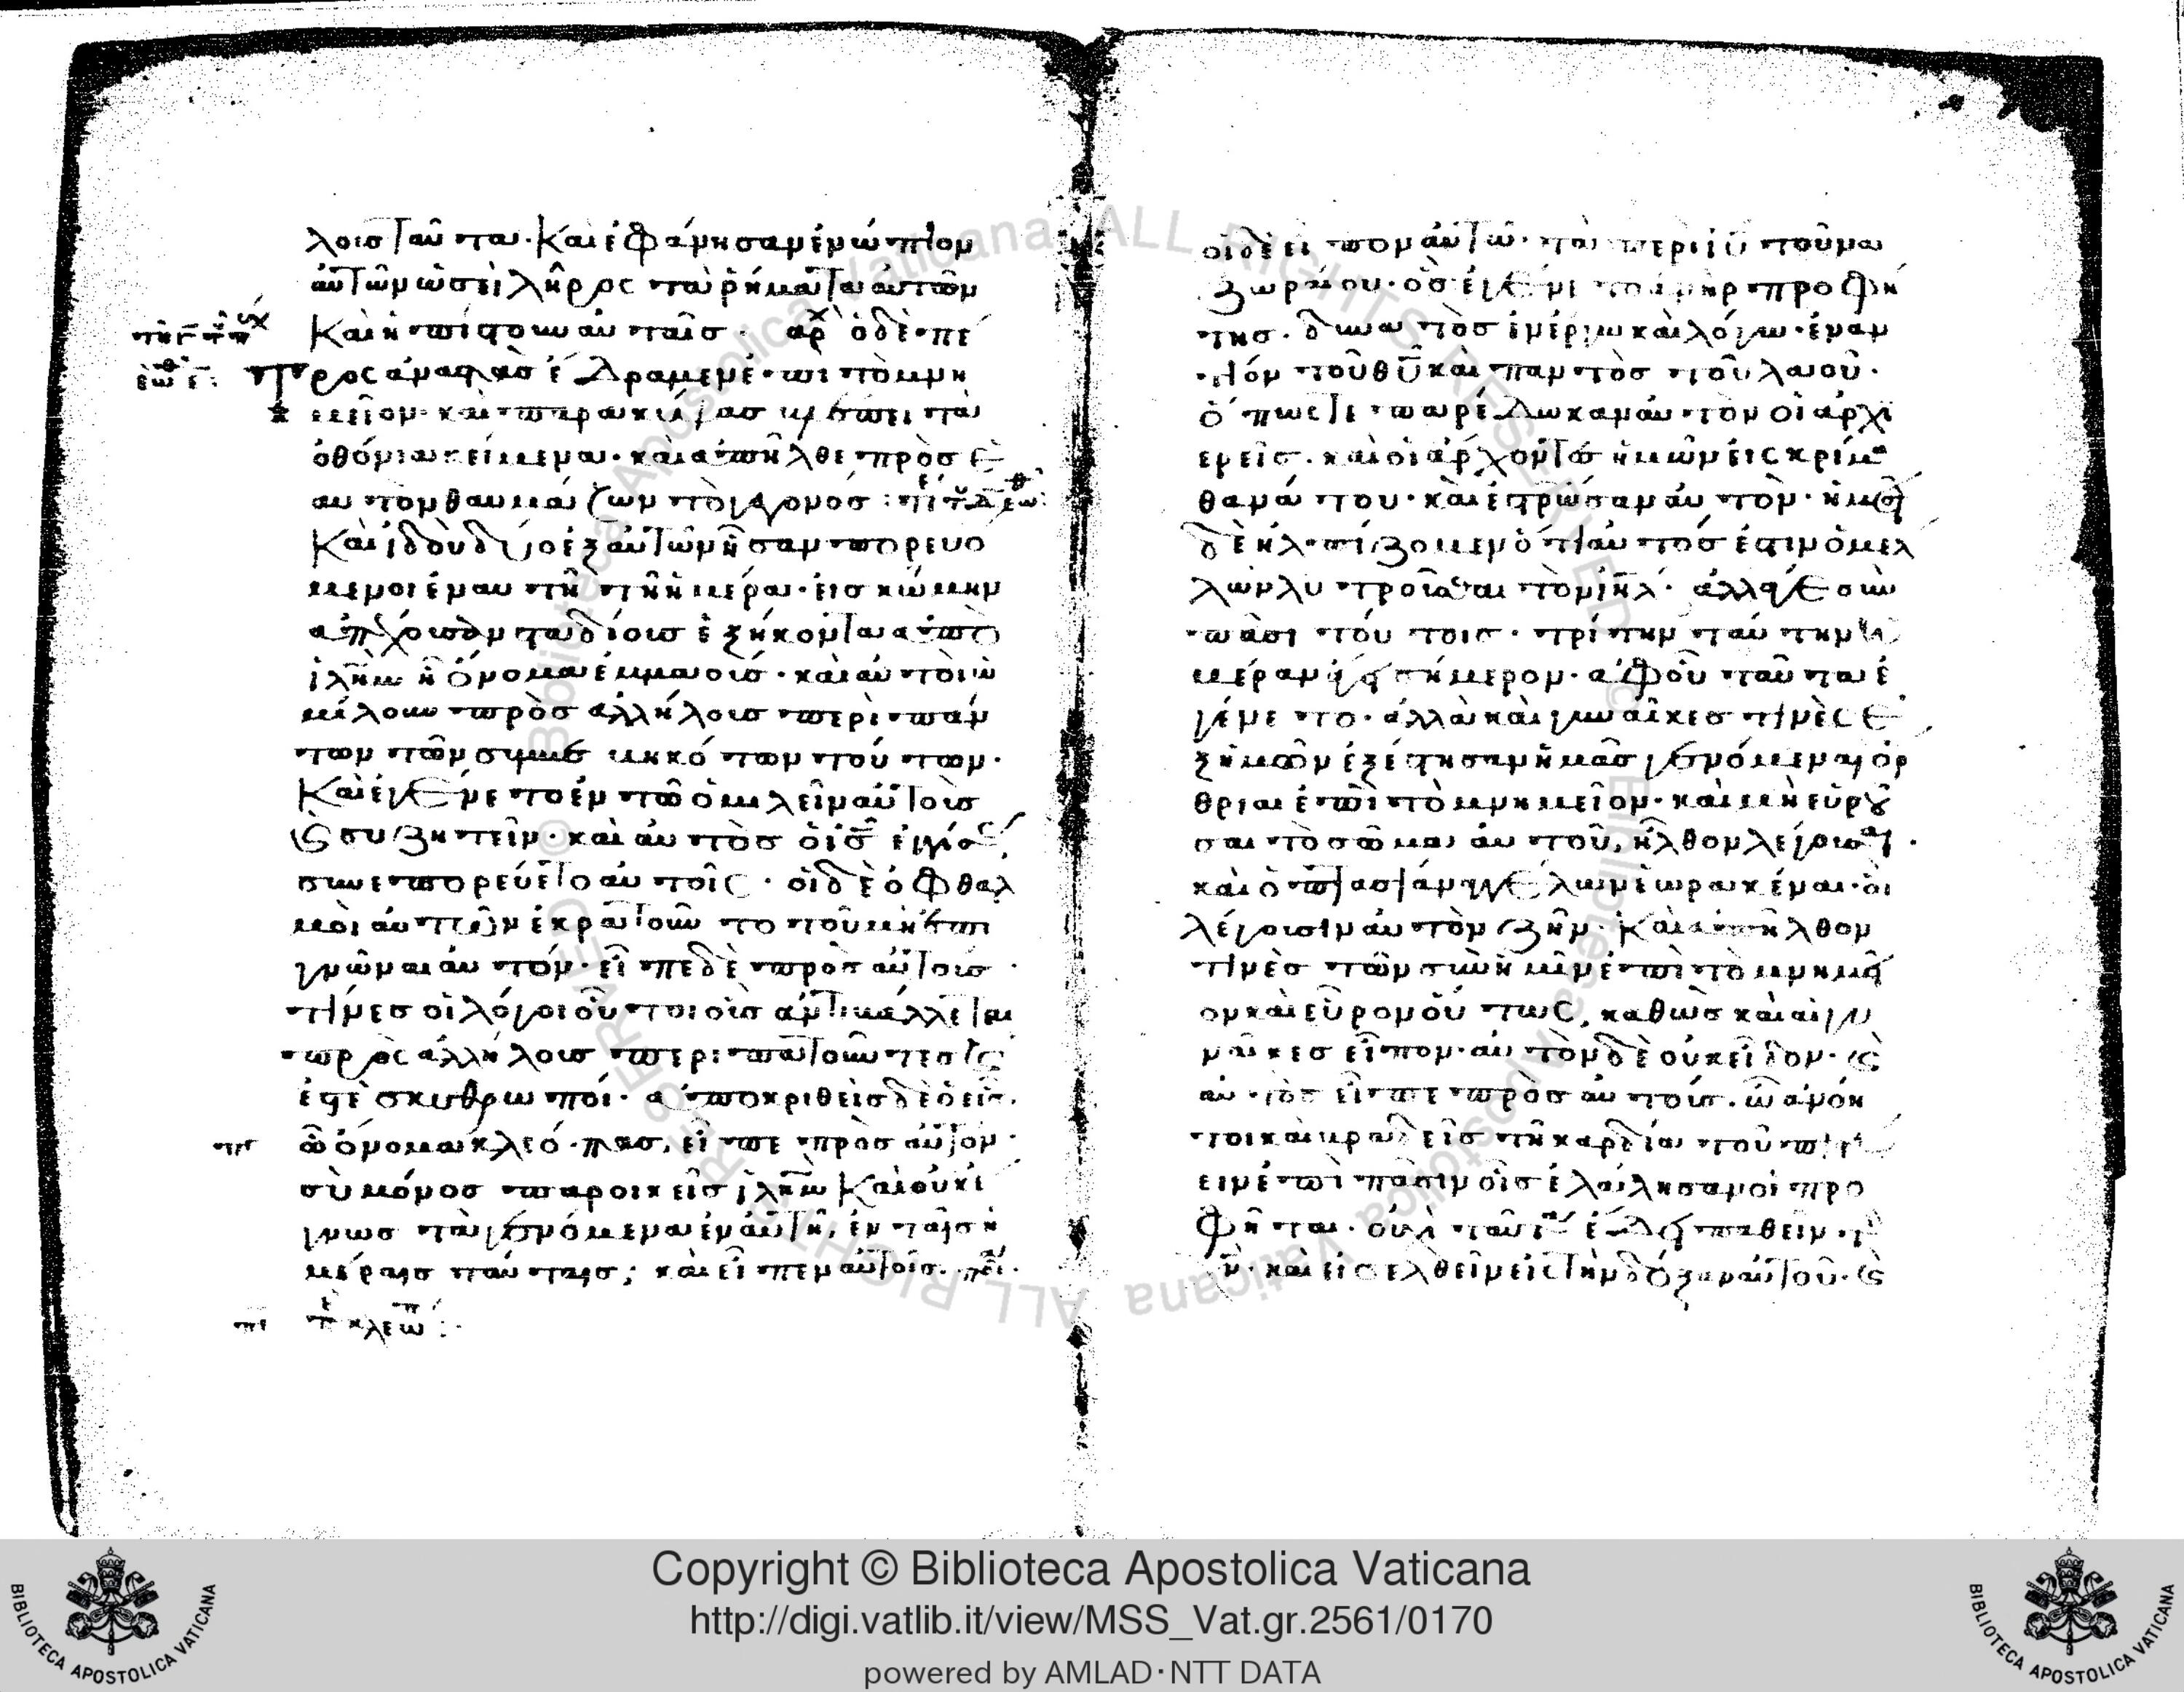 λοις ταῦτα. Και ἐφάνησαν ἐνώπιον
αὐτῶν ὡσεὶ λῆρος τὰ ῥήματα αὐτῶν
Και ἠπίστουν αὐταῖς. αρχ ὁ δὲ πέ
τρος ἀναστὰς ἔδραμεν ἐπι τὸ μνη
μεῖον. και παρακύψας βλέπει τὰ
ὀθόνια κείμενα. και ἀπῆλθε πρὸς ἑ
αυτον θαυμάζων το γεγονός:
Και ἰδοὺ δύο ἐξ αὐτῶν ἦσαν πορευο
μενοι ἐν αυτῆ τῆ ἡμέρα. εις κώμην
απέχουσαν σταδίους ἑξήκοντα απο
ἰλημ ἧ ὄνομα ἐμμαούς. και αυτοι ὡ
μίλουν πρὸς ἀλλήλους περὶ πάν
των τῶν συμβεβηκότων τούτων.
Και ἐγένετο ἐν τῶ ὁμιλεῖν αὐτοὺς
και συζητεῖν. και αυτὸς ὁ ις ἐγγίσας
συνεπορεύετο αυτοῖς. οἱ δὲ ὀφθαλ
μοὶ αυτῶν ἐκρατοῦντο τοῦ μὴ ἐπι
γνῶναι αυτόν. εἶπε δὲ πρὸς αὐτοὺς.
τίνες οἱ λόγοι οὗτοι οὓς ἀντιβάλλετε
πρὸς ἀλλήλους περιπατοῦντες και
ἐστὲ σκυθρωποί. ἀποκριθεὶς δὲ ὁ εἷς.
ὧ ὄνομα κλεόπας, εἶπε πρὸς αὐτον.
σὺ μόνος παροικεῖς ἰλημ Και οὐκ ἔ
γνως τὰ γενόμενα ἐν αὐτῆ, ἐν ταῖς ἡ
μέραις ταύταις; και εἶπεν αὐτοῖς. ποῖ.
οἱ δὲ εἶπον αὐτῶ. τὰ περι ιυ τοῦ να
ζωραίου. ὃς ἐγένετο ἀνὴρ προφή
της. δυνατὸς ἐν ἔργω και λόγω. ἐναν
τίον τοῦ θυ και παντὸς τοῦ λαοῦ.
ὅπως τε παρέδωκαν αυτον οἱ ἀρχι
ερεῖς. και οἱ ἄρχοντες ἡμῶν εἰς κρίμα
θανάτου. και ἐστρώσαν αυτὸν. ἡμεῖς
δὲ ἠλπίζομεν ὅτι αυτός ἐστιν ὁ μέλ
λων λυτροῦσθαι τὸν ιηλ. ἀλλάγε σὺν
πᾶσι τούτοις. τρίτην ταύτην ἡ
μέραν ἄγει σήμερον. ἀφοὗ ταῦτα ἐ
γένετο. ἀλλὰ και γυναῖκες τινὲς ἐ
ξ ἡμῶν ἐξέστησαν ἡμᾶς γενόμεναι ὄρ
θριαι ἐπὶ τὸ μνημεῖον. και μὴ εὑροῦ
σαι τὸ σῶμα αυτοῦ, ἦλθον λέγουσαι.
και ὀπτασίαν ἀγγέλων ἑωρακέναι. οἳ
λέγουσιν αυτὸν ζῆν. Και ἀπῆλθον
τινὲς τῶν σὺν ἡμῖν ἐπὶ τὸ μνημεῖ
ον και εὗρον οὕτως, καθὼς και αἱ γυ
ναῖκες εἶπον. αυτὸν δὲ οὐκ εἶδον. και
αυτὸς εἶπε πρὸς αυτούς. ὦ ἀνόη
τοι και βραδεῖς τῆ καρδία τοῦ πιστεύ
ειν ἐπὶ πᾶσιν οἷς ἐλάλησαν οἱ προ
φῆται. οὐχὶ ταῦτα ἔδει παθεῖν τον
χν. και εἰσελθεῖν εἰς την δόξαν αὐτοῦ. και
Copyright © Biblioteca Apostolica Vaticana
http://digi.vatlib.it/view/MSS_Vat.gr.2561/0170
powered by AMLAD·NTT DATA
BIBLIOTECA APOSTOLICA VATICANA
BIBLIOTECA APOSTOLICA VATICANA